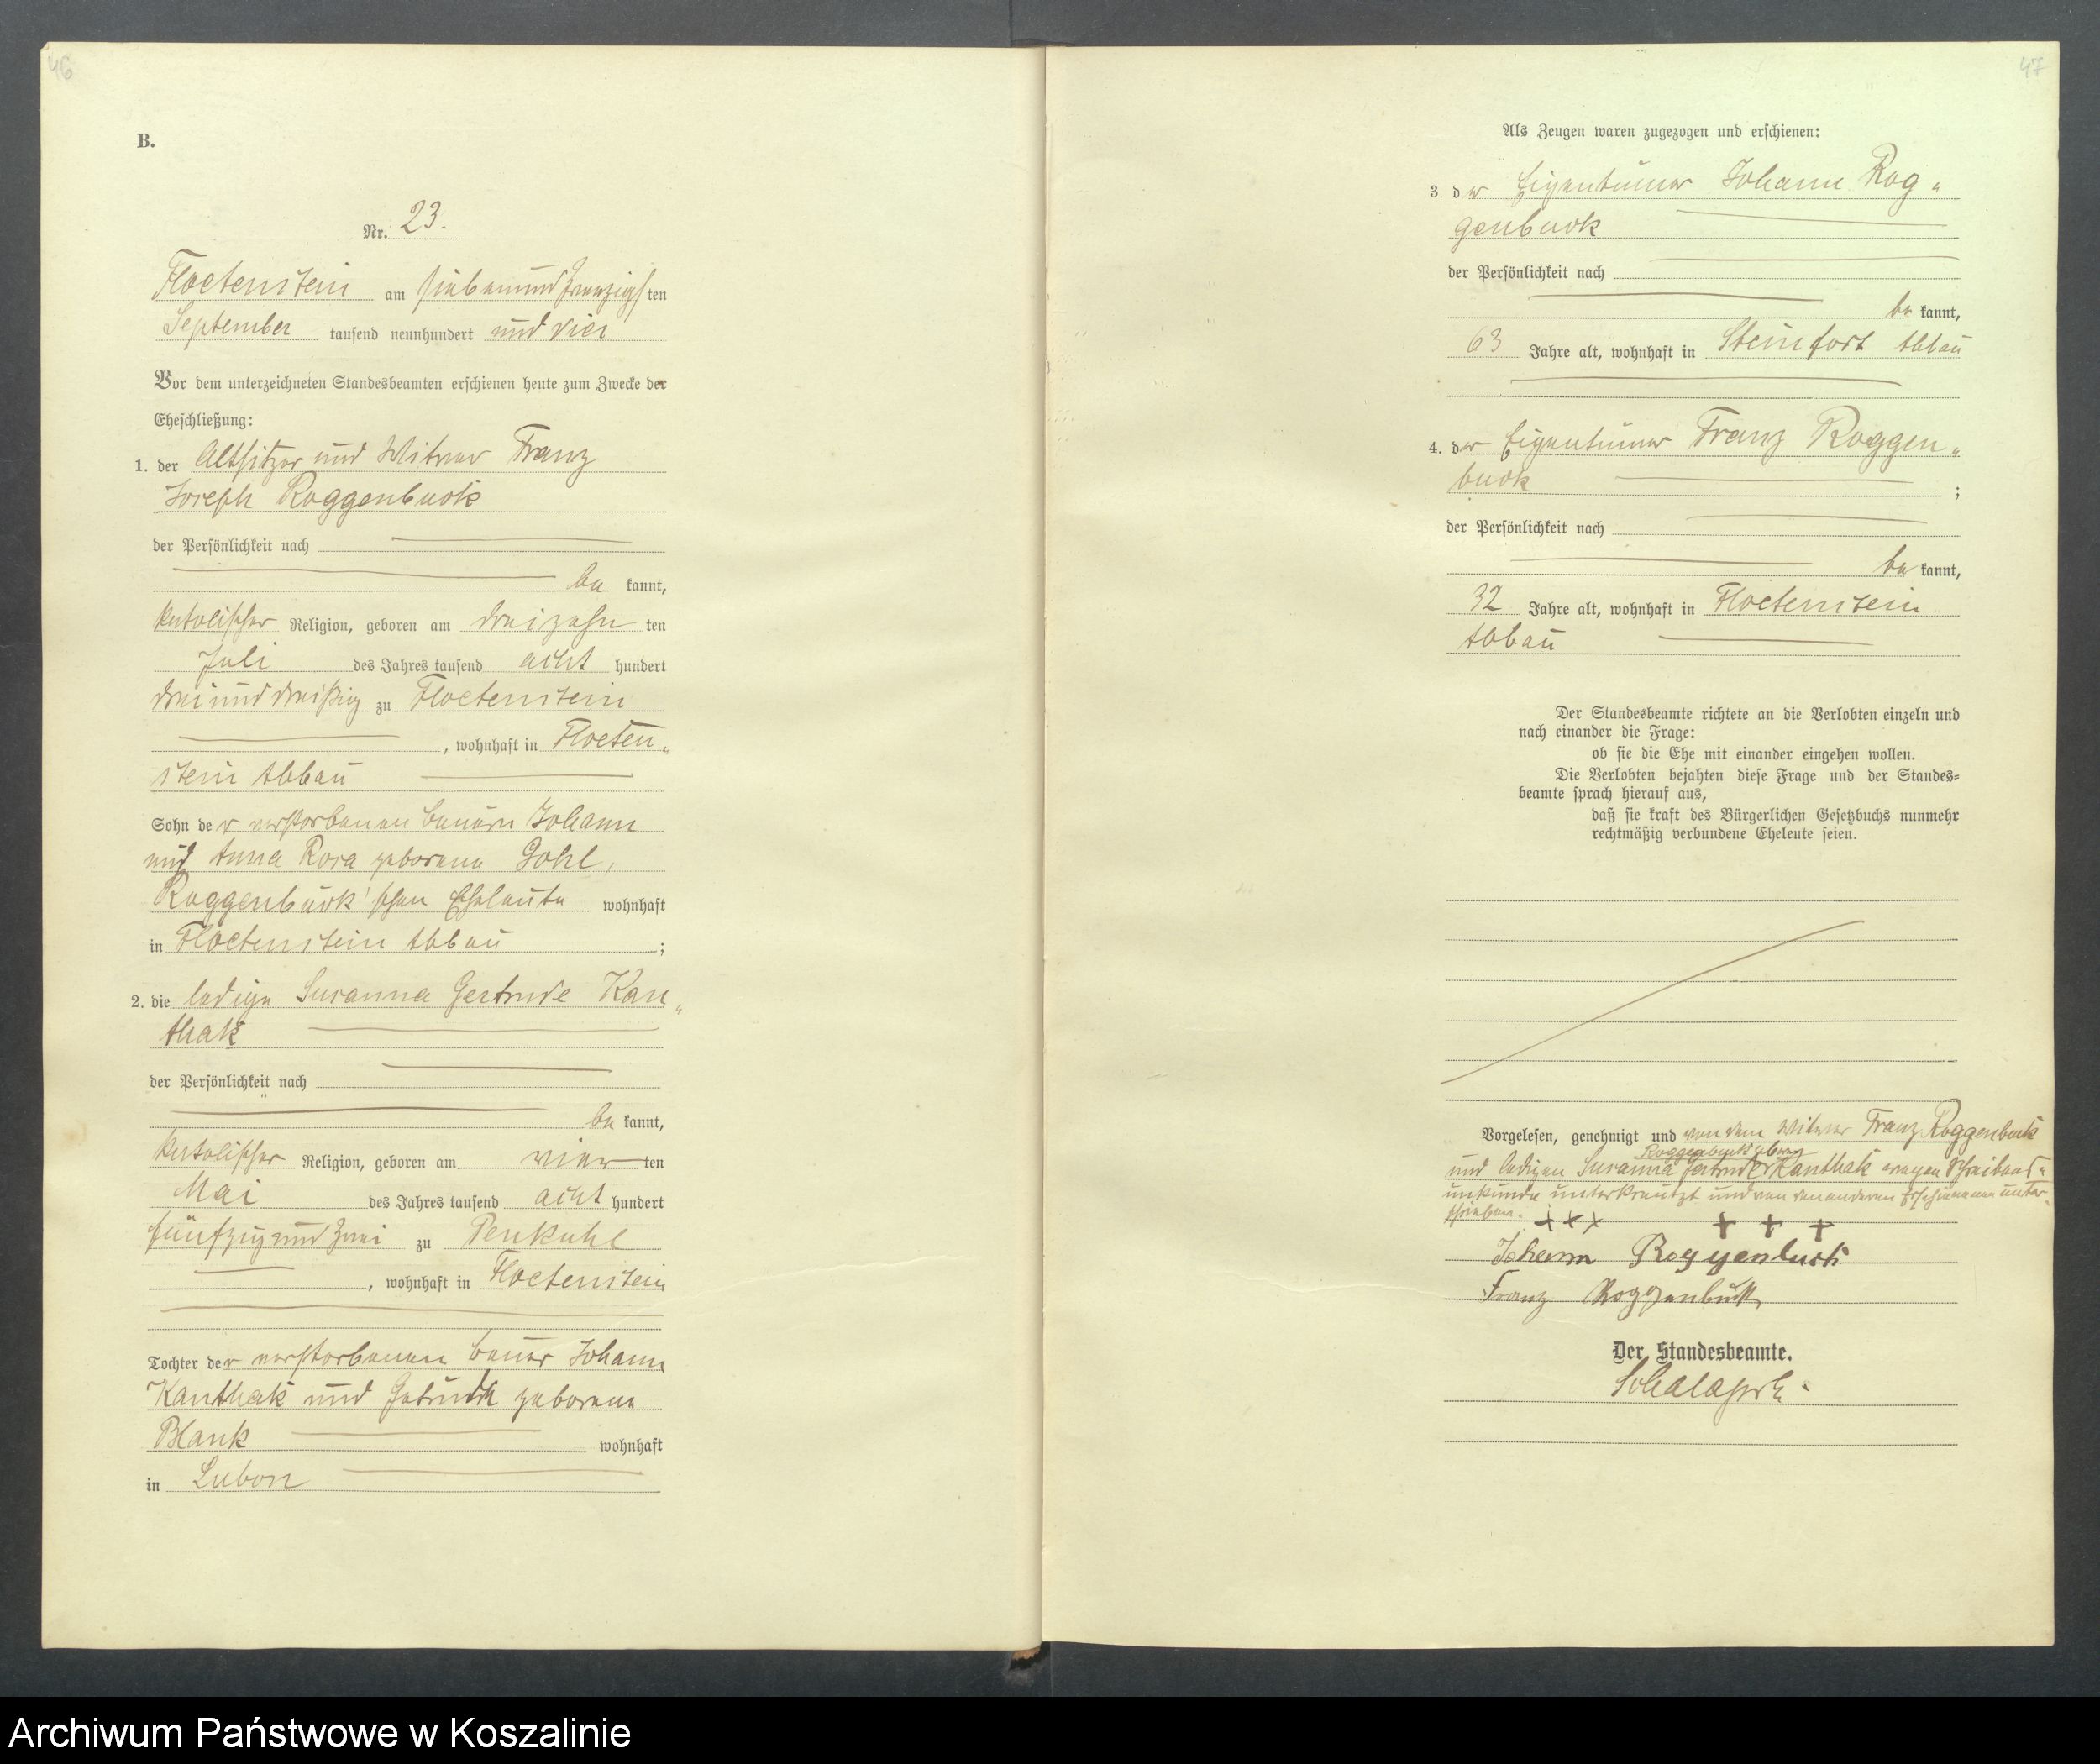 46
B.
Nr. 23.
Floetenstein am siebenundzwanzigsten
September tausend neunhundert und vier
Vor dem unterzeichneten Standesbeamten erschienen heute zum Zwecke der
Eheschließung:
1. der Altsitzer und Witwer Franz
Joseph Roggenbuck
der Persönlichkeit nach
be kannt,
katolischer Religion, geboren am dreizehn ten
Juli des Jahres tausend acht hundert
dreiunddreißig zu Floetenstein
, wohnhaft in Floeten„
stein Abbau
Sohn der verstorbenen Bauern Johann
und Anna Rosa geborene Gohl,
Roggenbuck'schen Eheleute wohnhaft
in Floetenstein Abbau ;
2. die ledige Susanna Gertrude Kan„
thak
der Persönlichkeit nach
be kannt,
katolischer Religion, geboren am vier ten
Mai des Jahres tausend acht hundert
fünfzig und zwei zu Penkuhl
, wohnhaft in Floetenstein
Tochter der verstorbenen Bauer Johann
Kanthak und geborene
Blank wohnhaft
in Lubon
47
Als Zeugen waren zugezogen und erschienen:
3. der Eigentümer Johann Rog„
genbuck
der Persönlichkeit nach
be kannt,
63 Jahre alt, wohnhaft in Steinfort Abbau
4. der Eigentümer Franz Roggen„
buck ;
der Persönlichkeit nach
be kannt,
32 Jahre alt, wohnhaft in Floetenstein
Abbau
Der Standesbeamte richtete an die Verlobten einzeln und
nach einander die Frage:
ob sie die Ehe mit einander eingehen wollen.
Die Verlobten bejahten diese Frage und der Standes=
beamte sprach hierauf aus,
daß sie kraft des Bürgerlichen Gesetzbuchs nunmehr
rechtmäßig verbundene Eheleute seien.
Vorgelesen, genehmigt und von dem Witwer Franz Roggenbuck
Roggenbuck geborene
und ledigen Susanna Gertrude Kanthak wegen Schreibens„
unkunde unterkreuzt und von den anderen Erschienenen unter„
schrieben. + + + + + +
Johann Roggenbuck
Franz Roggenbuck
Der Standesbeamte.
Archiwum Państwowe w Koszalinie